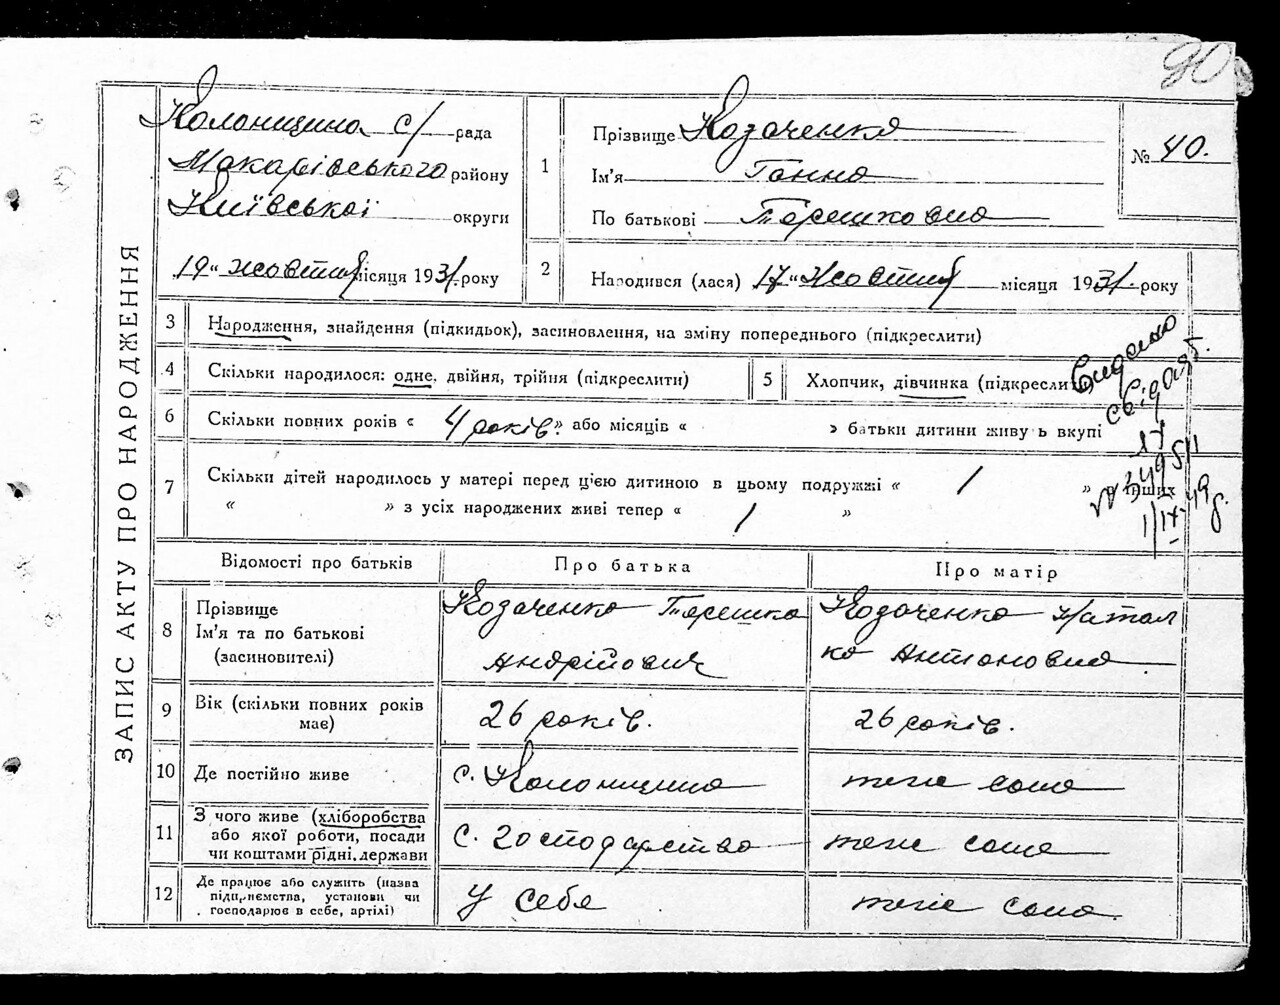 90
ЗАПИС АКТУ ПРО НАРОДЖЕННЯ
Колонщина с/рада
Макарівського району
Київської округи
19 „ жовтня місяця 1931 року
1
Прізвище Козаченко
Ім'я Ганна
По батькові Терешковна
№ 40.
2
Народився (лася) 17 „ жовтня місяця 1931. року
3 Народження, знайдення (підкидьок), засиновлення, на зміну попереднього (підкреслити)
4 Скільки народилося: одне, двійня, трійня (підкреслити)
5 Хлопчик, дівчинка (підкреслити)
6 Скільки повних років « 4 років » або місяців « » батьки дитини живуть вкупі
7 Скільки дітей народилось у матері перед цією дитиною в цьому подружжі « 1 » інших
« » з усіх народжених живі тепер « 1 »
Видано
свідоцт.
1/IX-49 р.
Відомості про батьків Про батька Про матір
8 Прізвище Ім'я та по батькові (засиновителі) Козаченко Терешко Андрійович Козаченко Наталка Антоновна
9 Вік (скільки повних років має) 26 років. 26 років.
10 Де постійно живе с. Колонщина теж саме
11 З чого живе (хліборобства або якої роботи, посади чи коштами рідні, держави с. господарство теж саме
12 Де працює або служить (назва підприємства, установи чи господарює в себе, артілі) у себе теж саме.